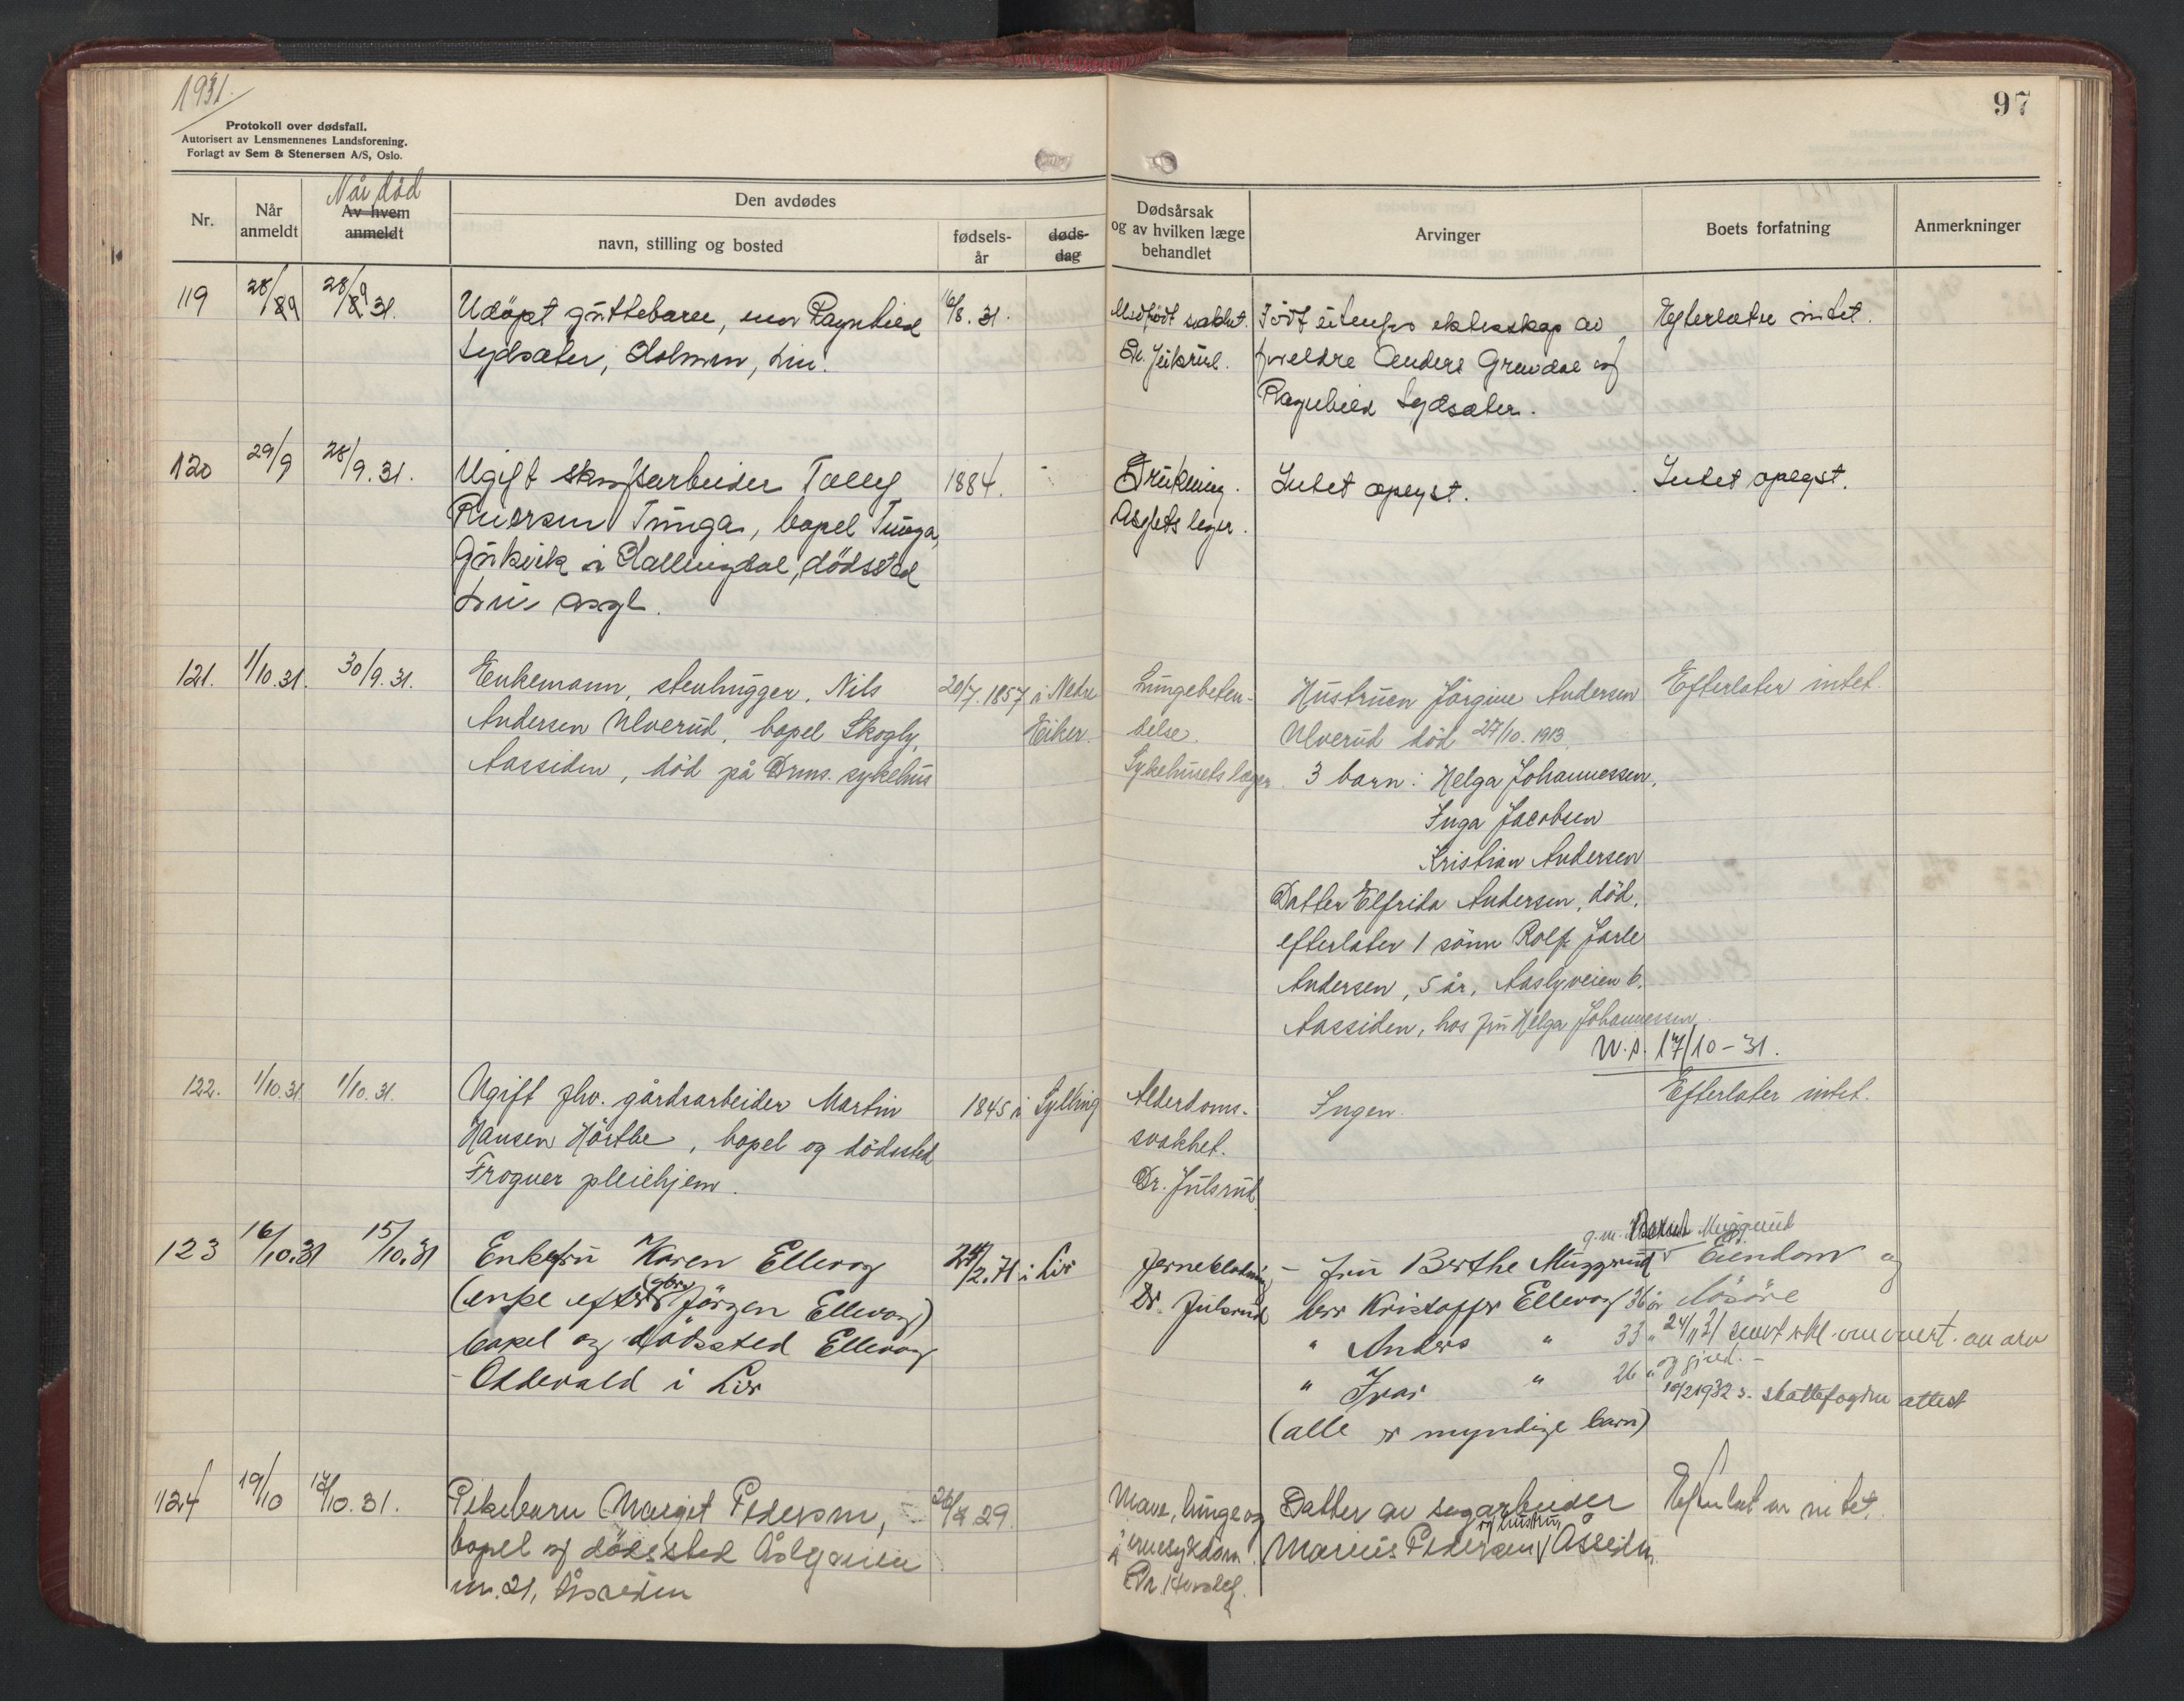 1931.
Protokoll over dødsfall.
Autorisert av Lensmennenes Landsforening.
Forlagt av Sem & Stenersen A/S, Oslo.
97
Nr.
Når anmeldt
Når død
Av hvem anmeldt
Den avdødes
navn, stilling og bosted
fødsels-år
døds-dag
Dødsårsak
og av hvilken læge
behandlet
Arvinger
Boets forfatning
Anmerkninger
119 28/9 28/9 31.
Udöpt guttebarn, mor Ragnhild
Lydsæter, Holmen, Lier.
16/8. 31.
Medfödt svakhet.
Dr. Julsrud.
Född utenfor ekteskap av
foreldre Anders Gravdal og
Ragnhild Lydsæter.
Efterlater intet.
120 29/9 28/9. 31.
Ugift skogsarbeider
Tunga, bopel Tunga,
i Hallingdal, dödssted
Lier asyl.
1884.
Drukning.
Asylets leger.
Intet oplyst.
Intet oplyst.
121. 1/10. 31. 30/9. 31.
Enkemann, stenhugger, Nils
Andersen Ulverud, bopel Skogly,
Aassiden, död på Drms. sykehus
20/7. 1857 i Nedre
Eiker.
Lungebeten-
delse.
Sykehusets læger.
Hustruen Jörgine Andersen
Ulverud död 27/10. 1913.
3 barn: Helga Johannessen,
Inga Jacobsen
Kristian Andersen
Datter Elfrida Andersen, död,
efterlater 1 sönn Rolf Jarle
Andersen, 5 år, Aaslyveien 6.
Aassiden, hos fru Helga Johannessen.
U.s. 17/10-31.
Efterlater intet.
122. 1/10. 31 1/10. 31.
Ugift fhv. gårdsarbeider Martin
Hansen Hörthe, bopel og dödssted
Frogner pleiehjem.
1845 i Sylling
Alderdoms-
svakhet.
Dr. Julsrud
Ingen.
Efterlater intet.
123 16/10.31 15/10.31
Enkefru Karen Ellevog
(enke efter gbr. Jörgen Ellevog)
bopel og dødssted Ellevog
Oddevald i Lier
24/2. 71 i Lier
Jerneblødning
Dr. Julsrud
g.m. Muggerud
- fru Berthe Muggerud
herr Kristoffer Ellevog 36 år
" Anders " 33 "
" Ivar " 26 "
(alle er myndige barn)
Eiendom og
løsöre
24/11 31 sendt av arv
og gjeld. -
10/2 1932 s. skattefogden attest
124 19/10 17/10. 31.
Pikebarn Margit Pedersen,
bopel og dödssted
nr. 21, Åssiden
29.
Mave, lunge og
Dr.
Datter av sagarbeider
og hustru
Marius Pedersen, Åssiden
Efterlater intet.